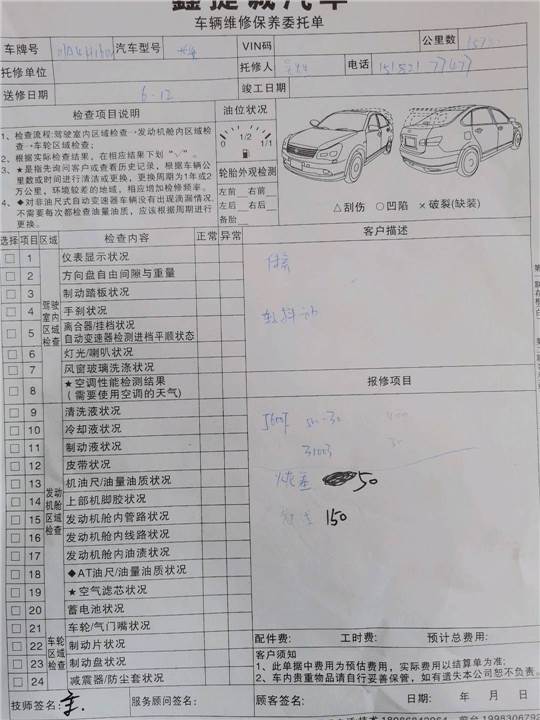 鑫捷诚汽车
车辆维修保养委托单
车牌号 汽车型号 VIN码 公里数
托修单位 托修人 电话
送修日期 6.12 竣工日期
检查项目说明
1、检查流程:驾驶室内区域检查→发动机舱内区域检
查→车轮区域检查;
2、根据实际检查结果，在相应结果下划 "√"。
3、★是指先询问客户或查看历史记录，根据车辆公
里数或时间进行清洁或更换，更换周期为1年或2
万公里，环境较差的地域，相应增加检修频率。
4、◆对非油尺式自动变速器车辆没有出现滴漏情况，
不需要每次都检查油量油质，应该根据周期进行
更换。
油位状况
0 1/2 1/1
轮胎外观检测
左前 右前
左后 右后
备胎
△刮伤 ○凹陷 ×破裂(缺装)
选择 项目 区域 检查内容 正常 异常
客户描述
驾驶室内区域检查
1 仪表显示状况
2 方向盘自由间隙与重量
3 制动踏板状况
4 手刹状况
5 离合器/挂档状况
自动变速器检测进档平顺状态
6 灯光/喇叭状况
7 风窗玻璃洗涤状况
8 ★空调性能检测结果
(需要使用空调的天气)
报修项目
发动机舱区域检查
9 清洗液状况
10 冷却液状况
11 制动液状况
12 皮带状况
13 机油尺/油量油质状况
14 上部机脚胶状况
15 发动机舱内管路状况
16 发动机舱内线路状况
17 发动机舱内油渍状况
18 ◆AT油尺/油量油质状况
19 ★空气滤芯状况
20 蓄电池状况
50
150
车轮区域检查
21 车轮/气门嘴状况
22 制动片状况
23 制动盘状况
24 减震器/防尘套状况
配件费: 工时费: 预计总费用:
客户须知
1、此单据中费用为预估费用，实际费用以结算单为准;
2、车内贵重物品请自行妥善保管，如有遗失本公司恕不负责。
技师签名: 服务顾问签名: 顾客签名: 日期: 年 月 日